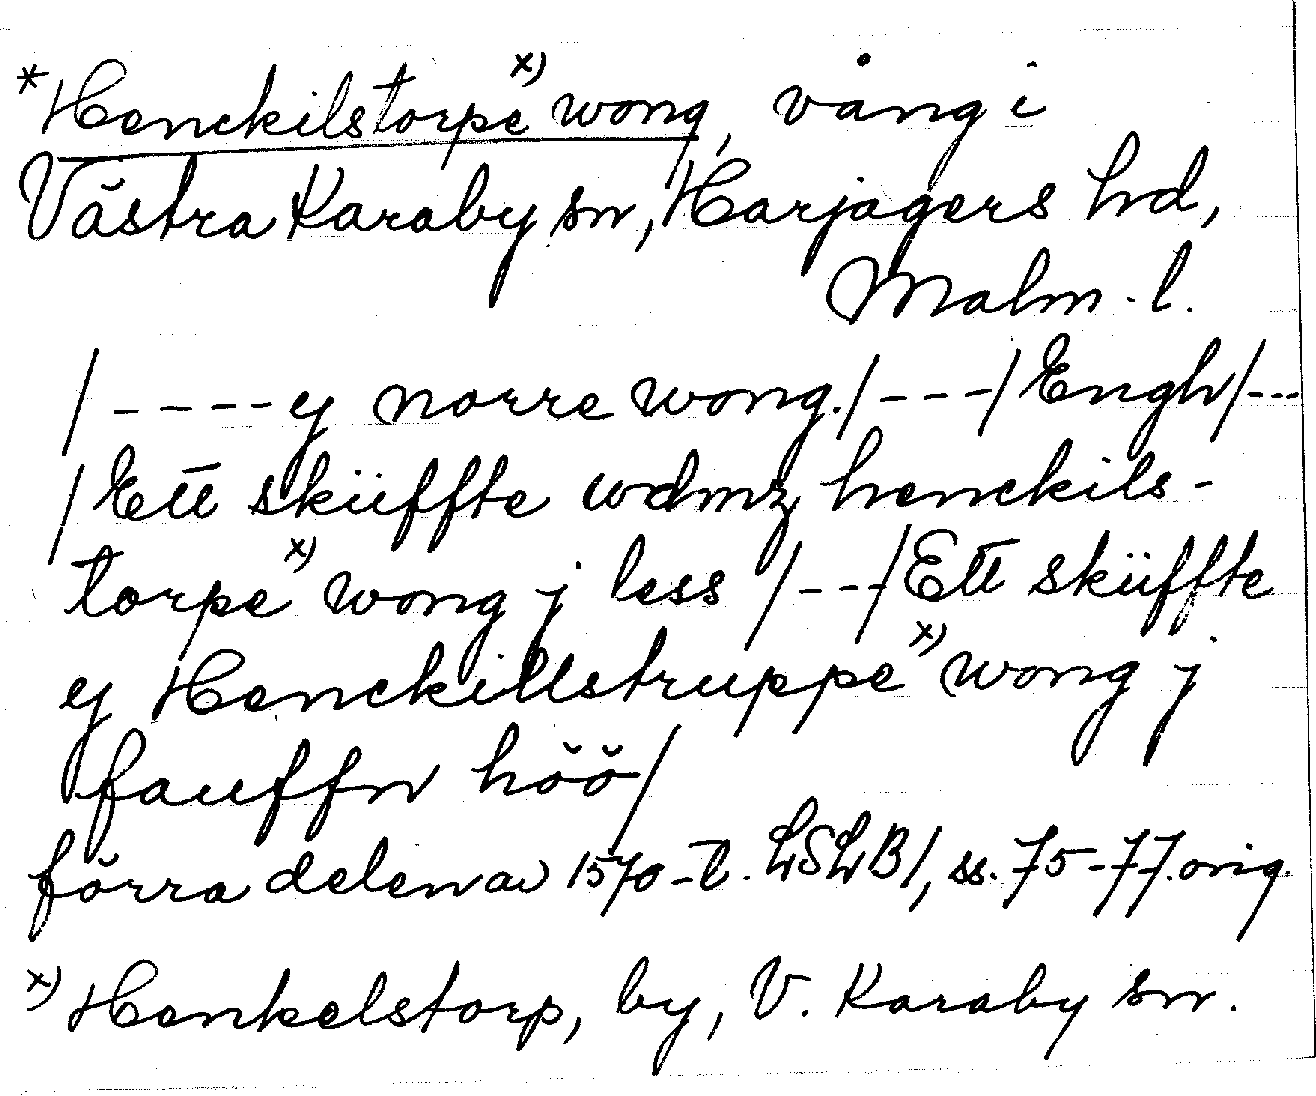 *Henckilstorpe x) wong, vång i
Västra Karaby sn, Harjagers hd,
Malm. l.
/----y norre wong./---/Engh/---
/Ett sküffte wdmz henckils-
torpe x) wong j less /---/Ett sküffte
y Henckillstruppe x) wong j
fauffn höö/
förra delen av 1570-t. LSLB1, ss. 75-77. orig.
x) Henkelstorp, by, V. Karaby sn.